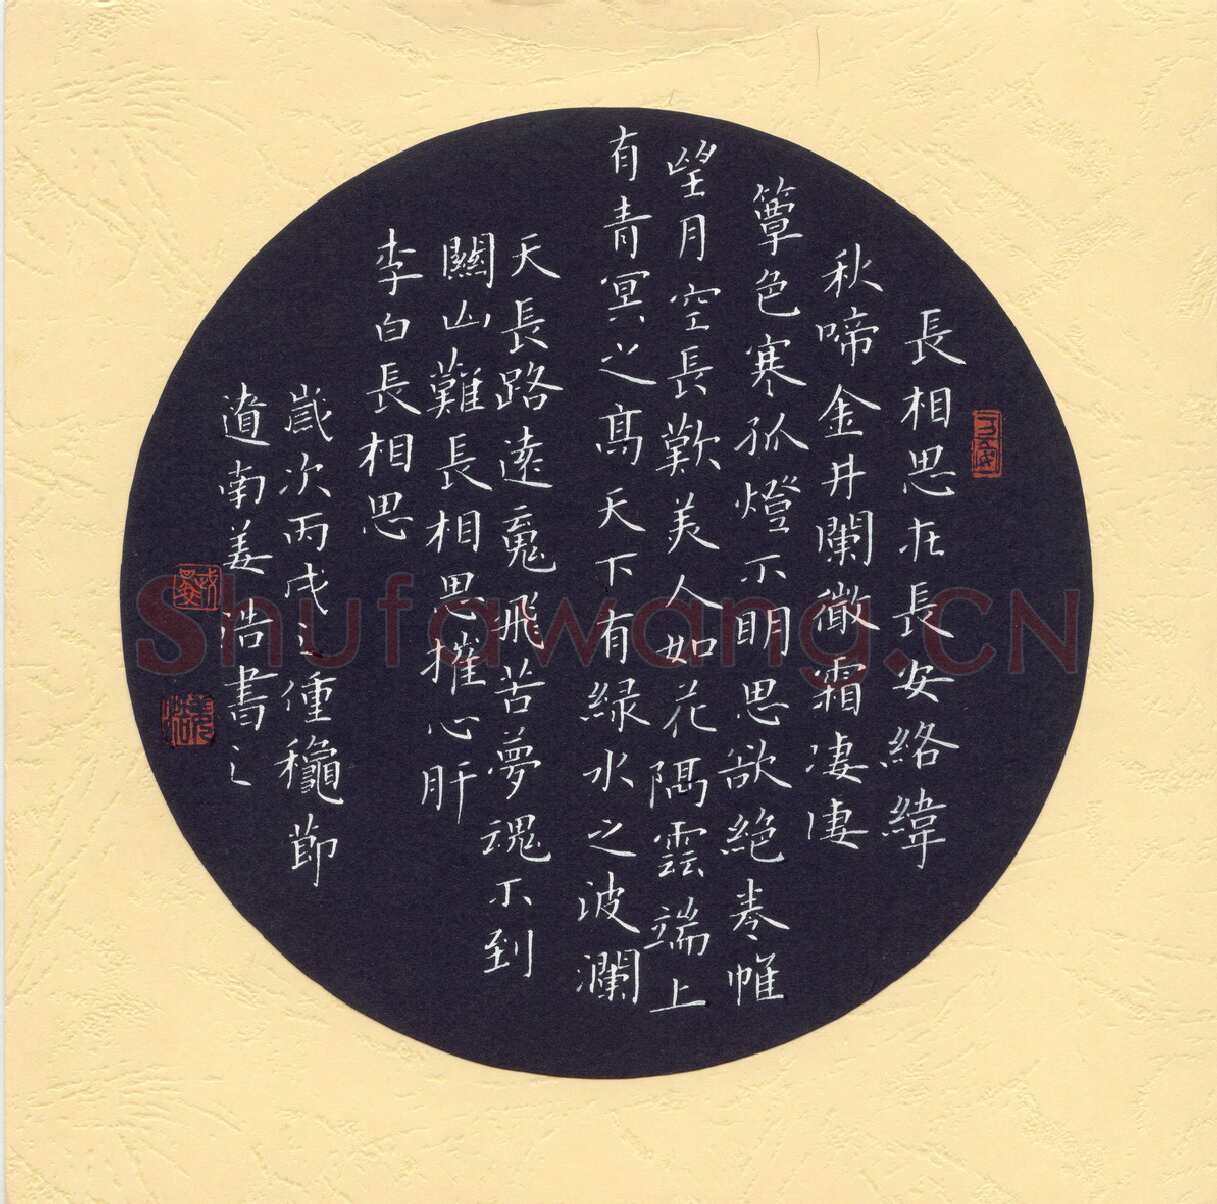 長相思在長安絡緯
秋啼金井闌微霜淒淒
簟色寒孤燈不明思欲絕卷帷
望月空長歎美人如花隔雲端上
有青冥之高天下有綠水之波瀾
天長路遠魂飛苦夢魂不到
關山難長相思摧心肝
李白長相思
歲次丙戌之重龝節
道南姜浩書之
Shufawang.CN